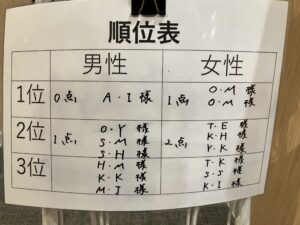 順位表
男性 女性
1位 0点 A・I 様 1点 O・M 様
O・M 様
2位 1点 O・Y 様 2点 T・E 様
S・M 様 K・H 様
S・H 様 Y・K 様
3位 H・M 様 T・K 様
K・K 様 S・S 様
M・J 様 K・I 様